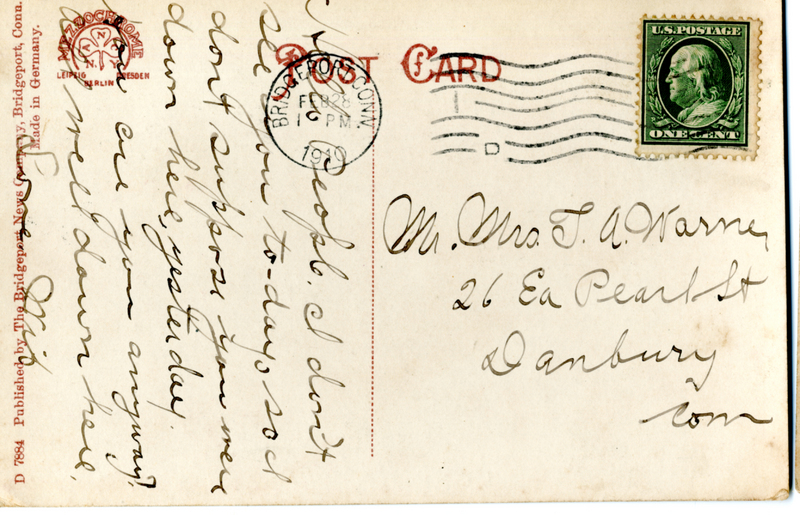 POST CARD
U.S. POSTAGE
ONE CENT
BRIDGEPORT CONN
FEB 28
1 PM
1910
D
Mr. Mrs. T. A. Warner
26 Ea Pearl St
Danbury
Conn
People. I don't
see you to-day, so I
don't suppose you were
down here yesterday.
are you anyway?
well down here.
MEZZOCHROME
LEIPZIG DRESDEN
BERLIN
D 7884 Published by The Bridgeport News Company, Bridgeport, Conn.
Made in Germany.